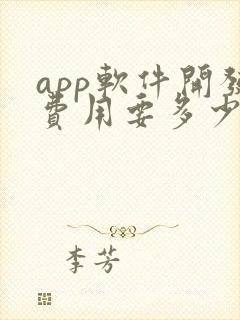 app軟件開發
費用要多少
李芳